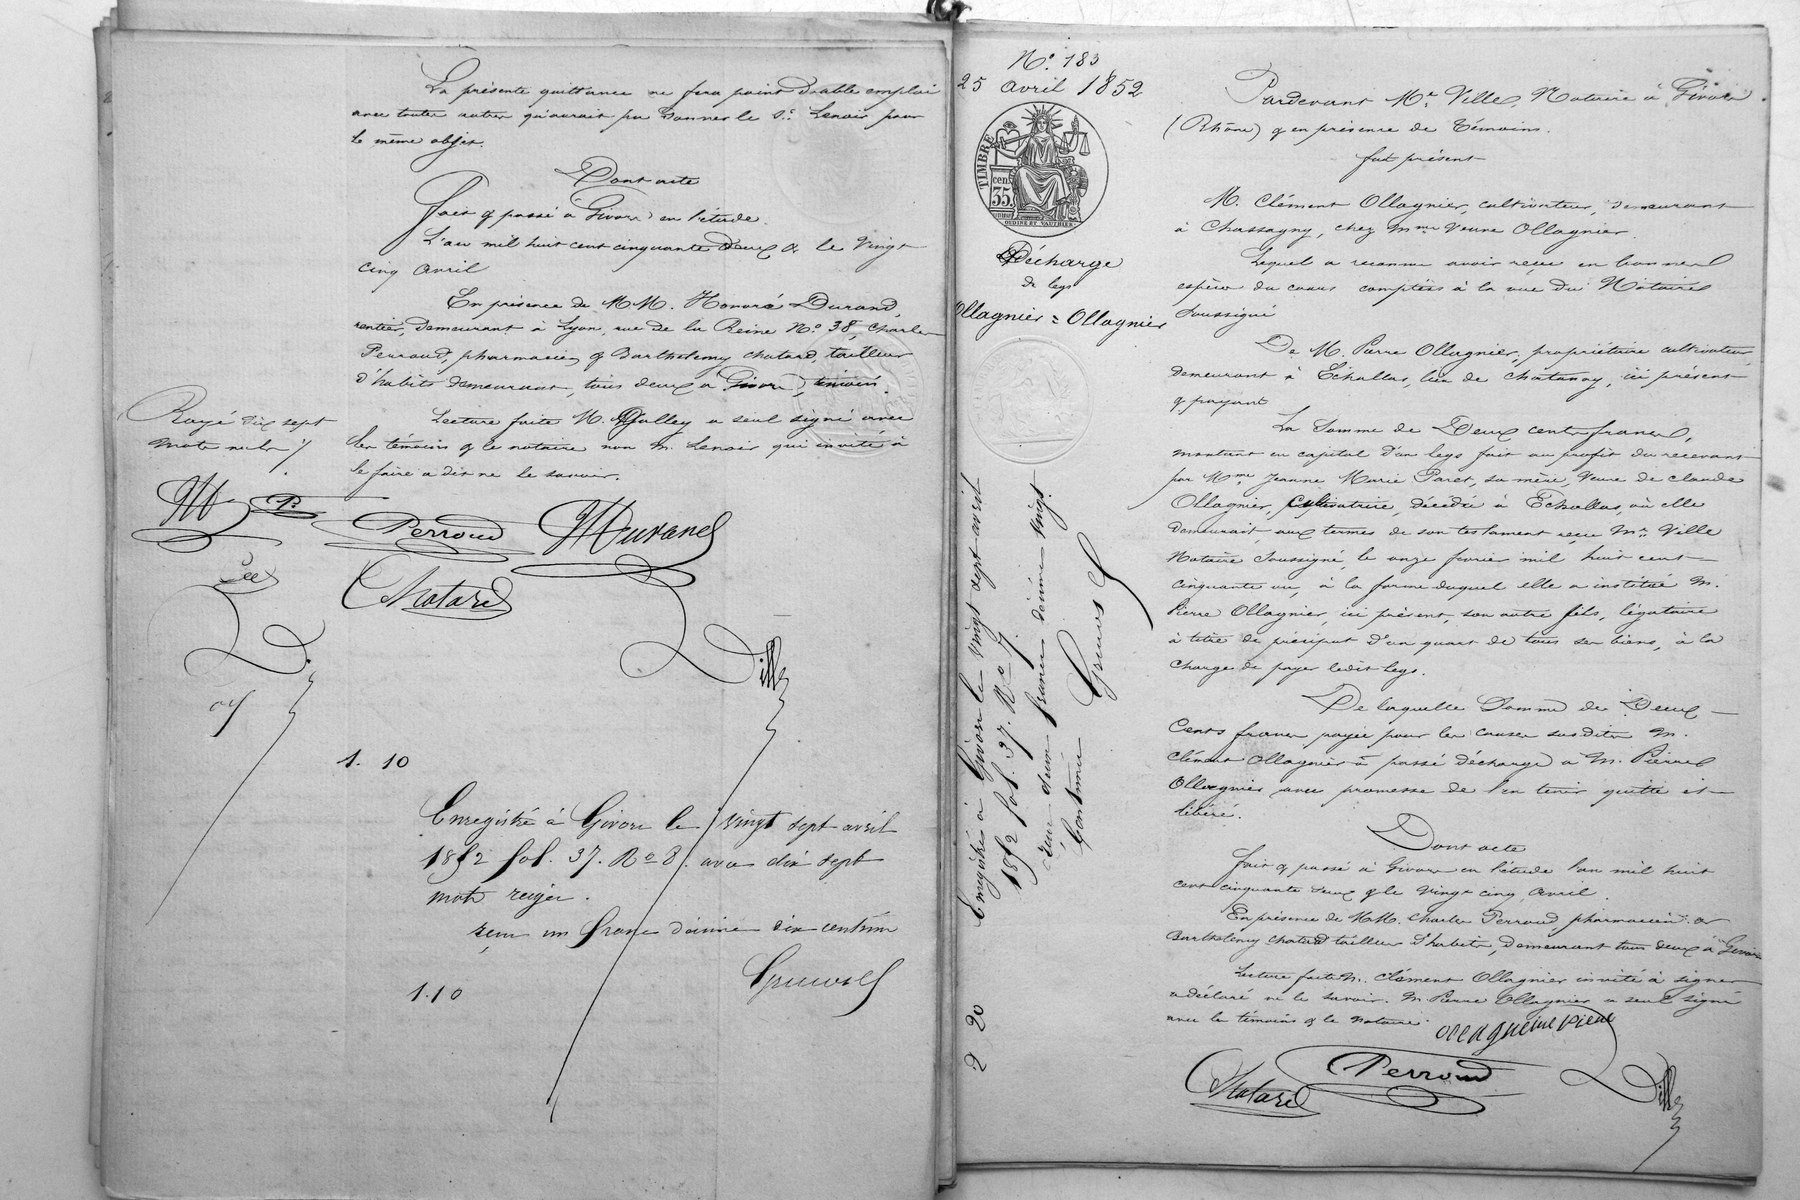 La présente quittance ne fera point double emploi
avec toute autre qu'aurait pu donner le S.r Lenoir pour
le même objet.
Dont acte
Fait & passé à Givors en l'étude
L'an mil huit cent cinquante deux & le vingt
cinq avril
En présence de M.M. Honoré Durand,
rentier, demeurant à Lyon, rue de la Reine N.o 38, Charles
Perroud, pharmacien & Barthelemy Chatard, tailleur
d'habits demeurant tous deux à Givors, témoins.
Lecture faite M. Golley a seul signé avec
les témoins & le notaire non M. Lenoir qui invité à
le faire a dit ne le savoir.
Rayé dix sept
mots nuls
Perroud
HDurand
Chatard
Ville
1. 10
Enregistré à Givors le vingt sept avril
1852 fol. 37. R.o 8. avec dix sept
mots rayés.
reçu un franc décime dix centimes
1.10
N.o 183
25 avril 1852
TIMBRE
35 cen
Décharge
de legs
Ollagnier = Ollagnier
Enregistré à Givors le vingt sept avril
1852 fol. 37. R.o 7.
reçu deux francs décime vingt
centimes
2 20
Pardevant M.e Ville, Notaire à Givors
(Rhône) & en présence de témoins.
fut présent
M. Clément Ollagnier, cultivateur, demeurant
à Chassagny, chez M.me Veuve Ollagnier.
Lequel a reconnu avoir reçu en bonnes
espèces du cours comptées à la vue du Notaire
soussigné
De M. Pierre Ollagnier, propriétaire cultivateur,
demeurant à Echallas, lieu de Chatanay, ici présent
& payant
La somme de Deux cents francs,
montant en capital d'un legs fait au profit du recevant
par M.me Jeanne Marie Paret, sa mère, Veuve de Claude
Ollagnier, cultivatrice, décédée à Echallas, où elle
demeurait aux termes de son testament reçu M.e Ville
Notaire soussigné, le onze février mil huit cent
cinquante un, à la forme duquel elle a institué M.
Pierre Ollagnier, ici présent, son autre fils, légataire
à titre de préciput d'un quart de tous ses biens, à la
charge de payer ledit legs.
De laquelle somme de Deux
cents francs payée pour les causes susdites M.
Clément Ollagnier a passé décharge à M. Pierre
Ollagnier avec promesse de l'en tenir quitte et
libéré.
Dont acte
Fait & passé à Givors en l'étude l'an mil huit
cent cinquante deux & le vingt cinq avril.
En présence de M.M. Charles Perroud, pharmacien &
Barthelemy Chatard tailleur d'habits, demeurant tous deux à Givors
Lecture faite M. Clément Ollagnier invité à signer
a déclaré ne le savoir. M. Pierre Ollagnier a seul signé
avec les témoins & le notaire.
Perroud
Chatard
Ville